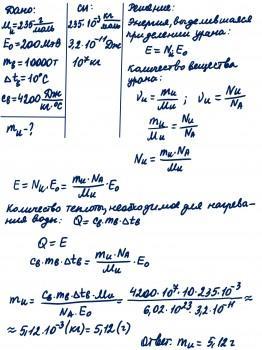 Дано:
Mи=235 г/моль
E₀=200МэВ
mв=10000т
Δtв=10°С
cв=4200 Дж/кг·°С
mи-?
СИ:
235·10⁻³ кг/моль
3,2·10⁻¹¹ Дж
10⁷кг
Решение:
Энергия, выделившаяся
при делении урана:
E=Nи·E₀
Количество вещества
урана:
νи=mи/Mи ; νи=Nи/NА
mи/Mи=Nи/NА
Nи=mи·NА/Mи
E=Nи·E₀=mи·NА/Mи·E₀
Количество теплоты, необходимое для нагрева-
ния воды: Q=cв·mв·Δtв
Q=E
cв·mв·Δtв=mи·NА/Mи·E₀
mи=cв·mв·Δtв·Mи/NА·E₀=4200·10⁷·10·235·10⁻³/6,02·10²³·3,2·10⁻¹¹≈
≈5,12·10⁻³(кг)=5,12(г)
Ответ: mи=5,12г